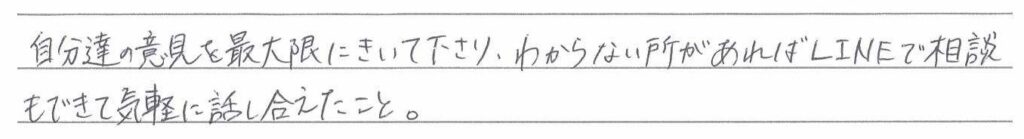 自分達の意見を最大限にきいて下さり、わからない所があればLINEで相談
もできて気軽に話し合えたこと。